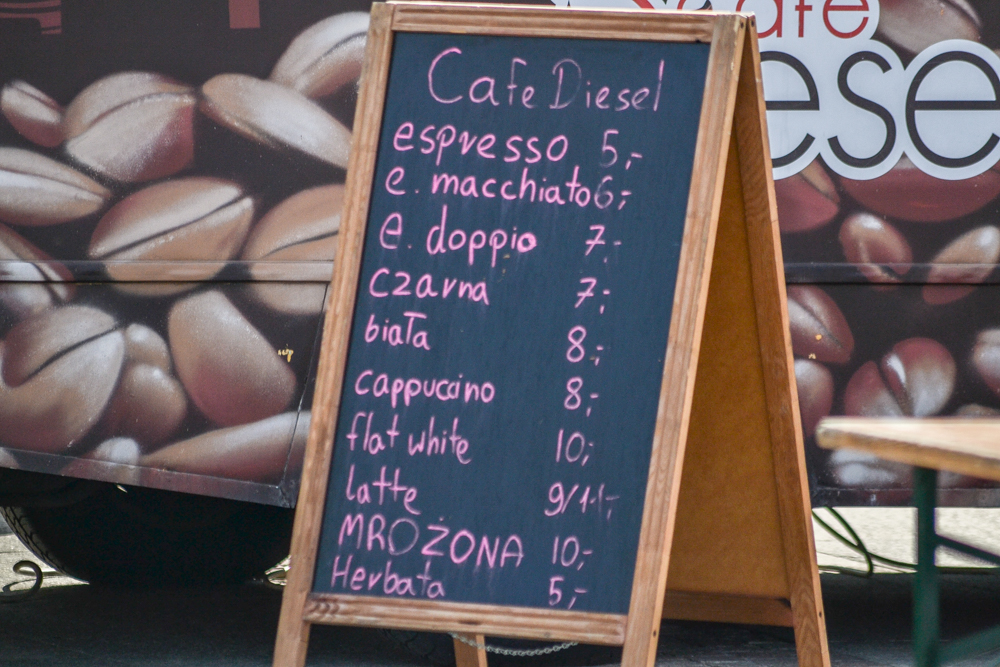 cafe
ese
Cafe Diesel
espresso 5,-
e. macchiato 6,-
e. doppio 7.-
czarna 7,-
biała 8,-
cappuccino 8,-
flat white 10,-
latte 9/11,-
MROŻONA 10,-
Herbata 5,-